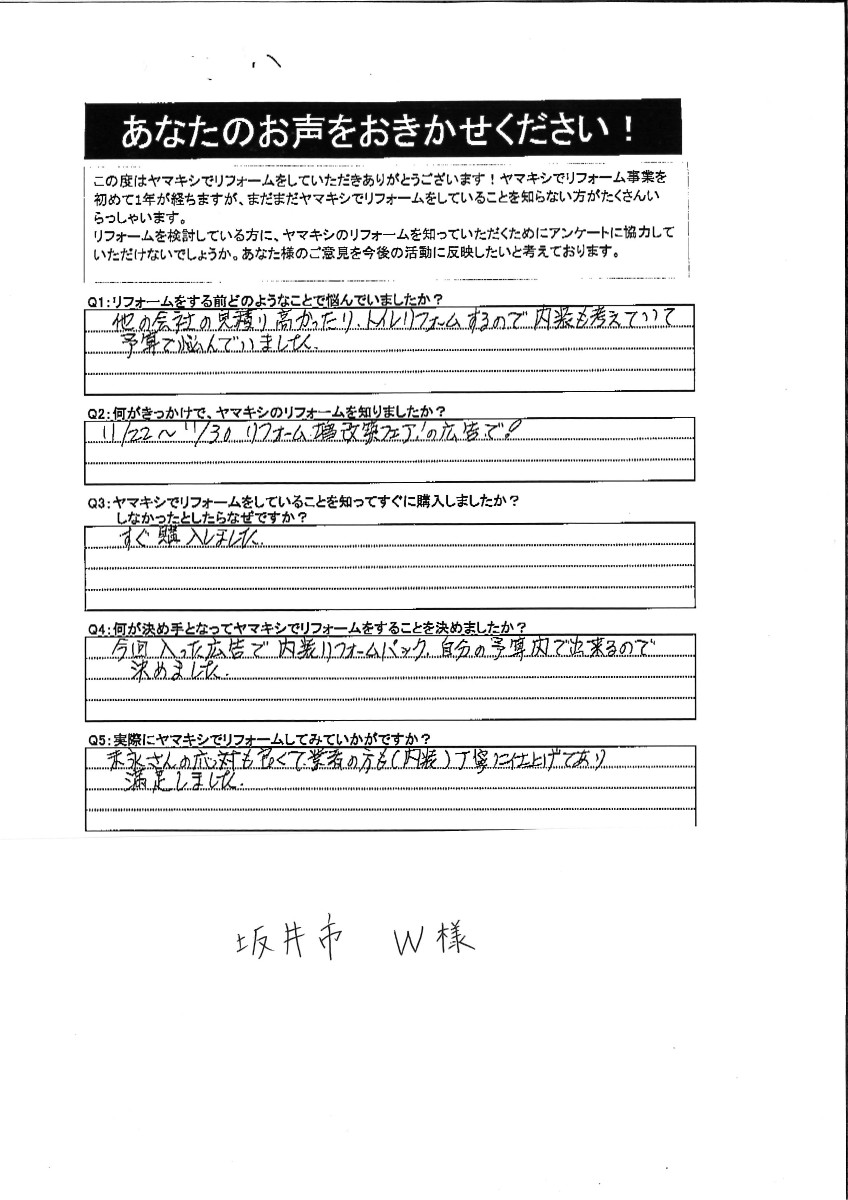 あなたのお声をおきかせください！
この度はヤマキシでリフォームをしていただきありがとうございます！ヤマキシでリフォーム事業を
初めて1年が経ちますが、まだまだヤマキシでリフォームをしていることを知らない方がたくさんい
らっしゃいます。
リフォームを検討している方に、ヤマキシのリフォームを知っていただくためにアンケートに協力して
いただけないでしょうか。あなた様のご意見を今後の活動に反映したいと考えております。
Q1：リフォームをする前どのようなことで悩んでいましたか？
他の会社の見積り高かったり、トイレリフォームするので内装も考えていて
予算で悩んでいました。
Q2：何がきっかけで、ヤマキシのリフォームを知りましたか？
11/22～11/30 リフォーム増改築フェア！の広告で！
Q3：ヤマキシでリフォームをしていることを知ってすぐに購入しましたか？
しなかったとしたらなぜですか？
すぐ購入しました。
Q4：何が決め手となってヤマキシでリフォームをすることを決めましたか？
今回入った広告で内装リフォームパック、自分の予算内で出来るので
決めました。
Q5：実際にヤマキシでリフォームしてみていかがですか？
末永さんの応対も良くて業者の方も（内装）丁寧に仕上げてあり
満足しました。
坂井市 W様